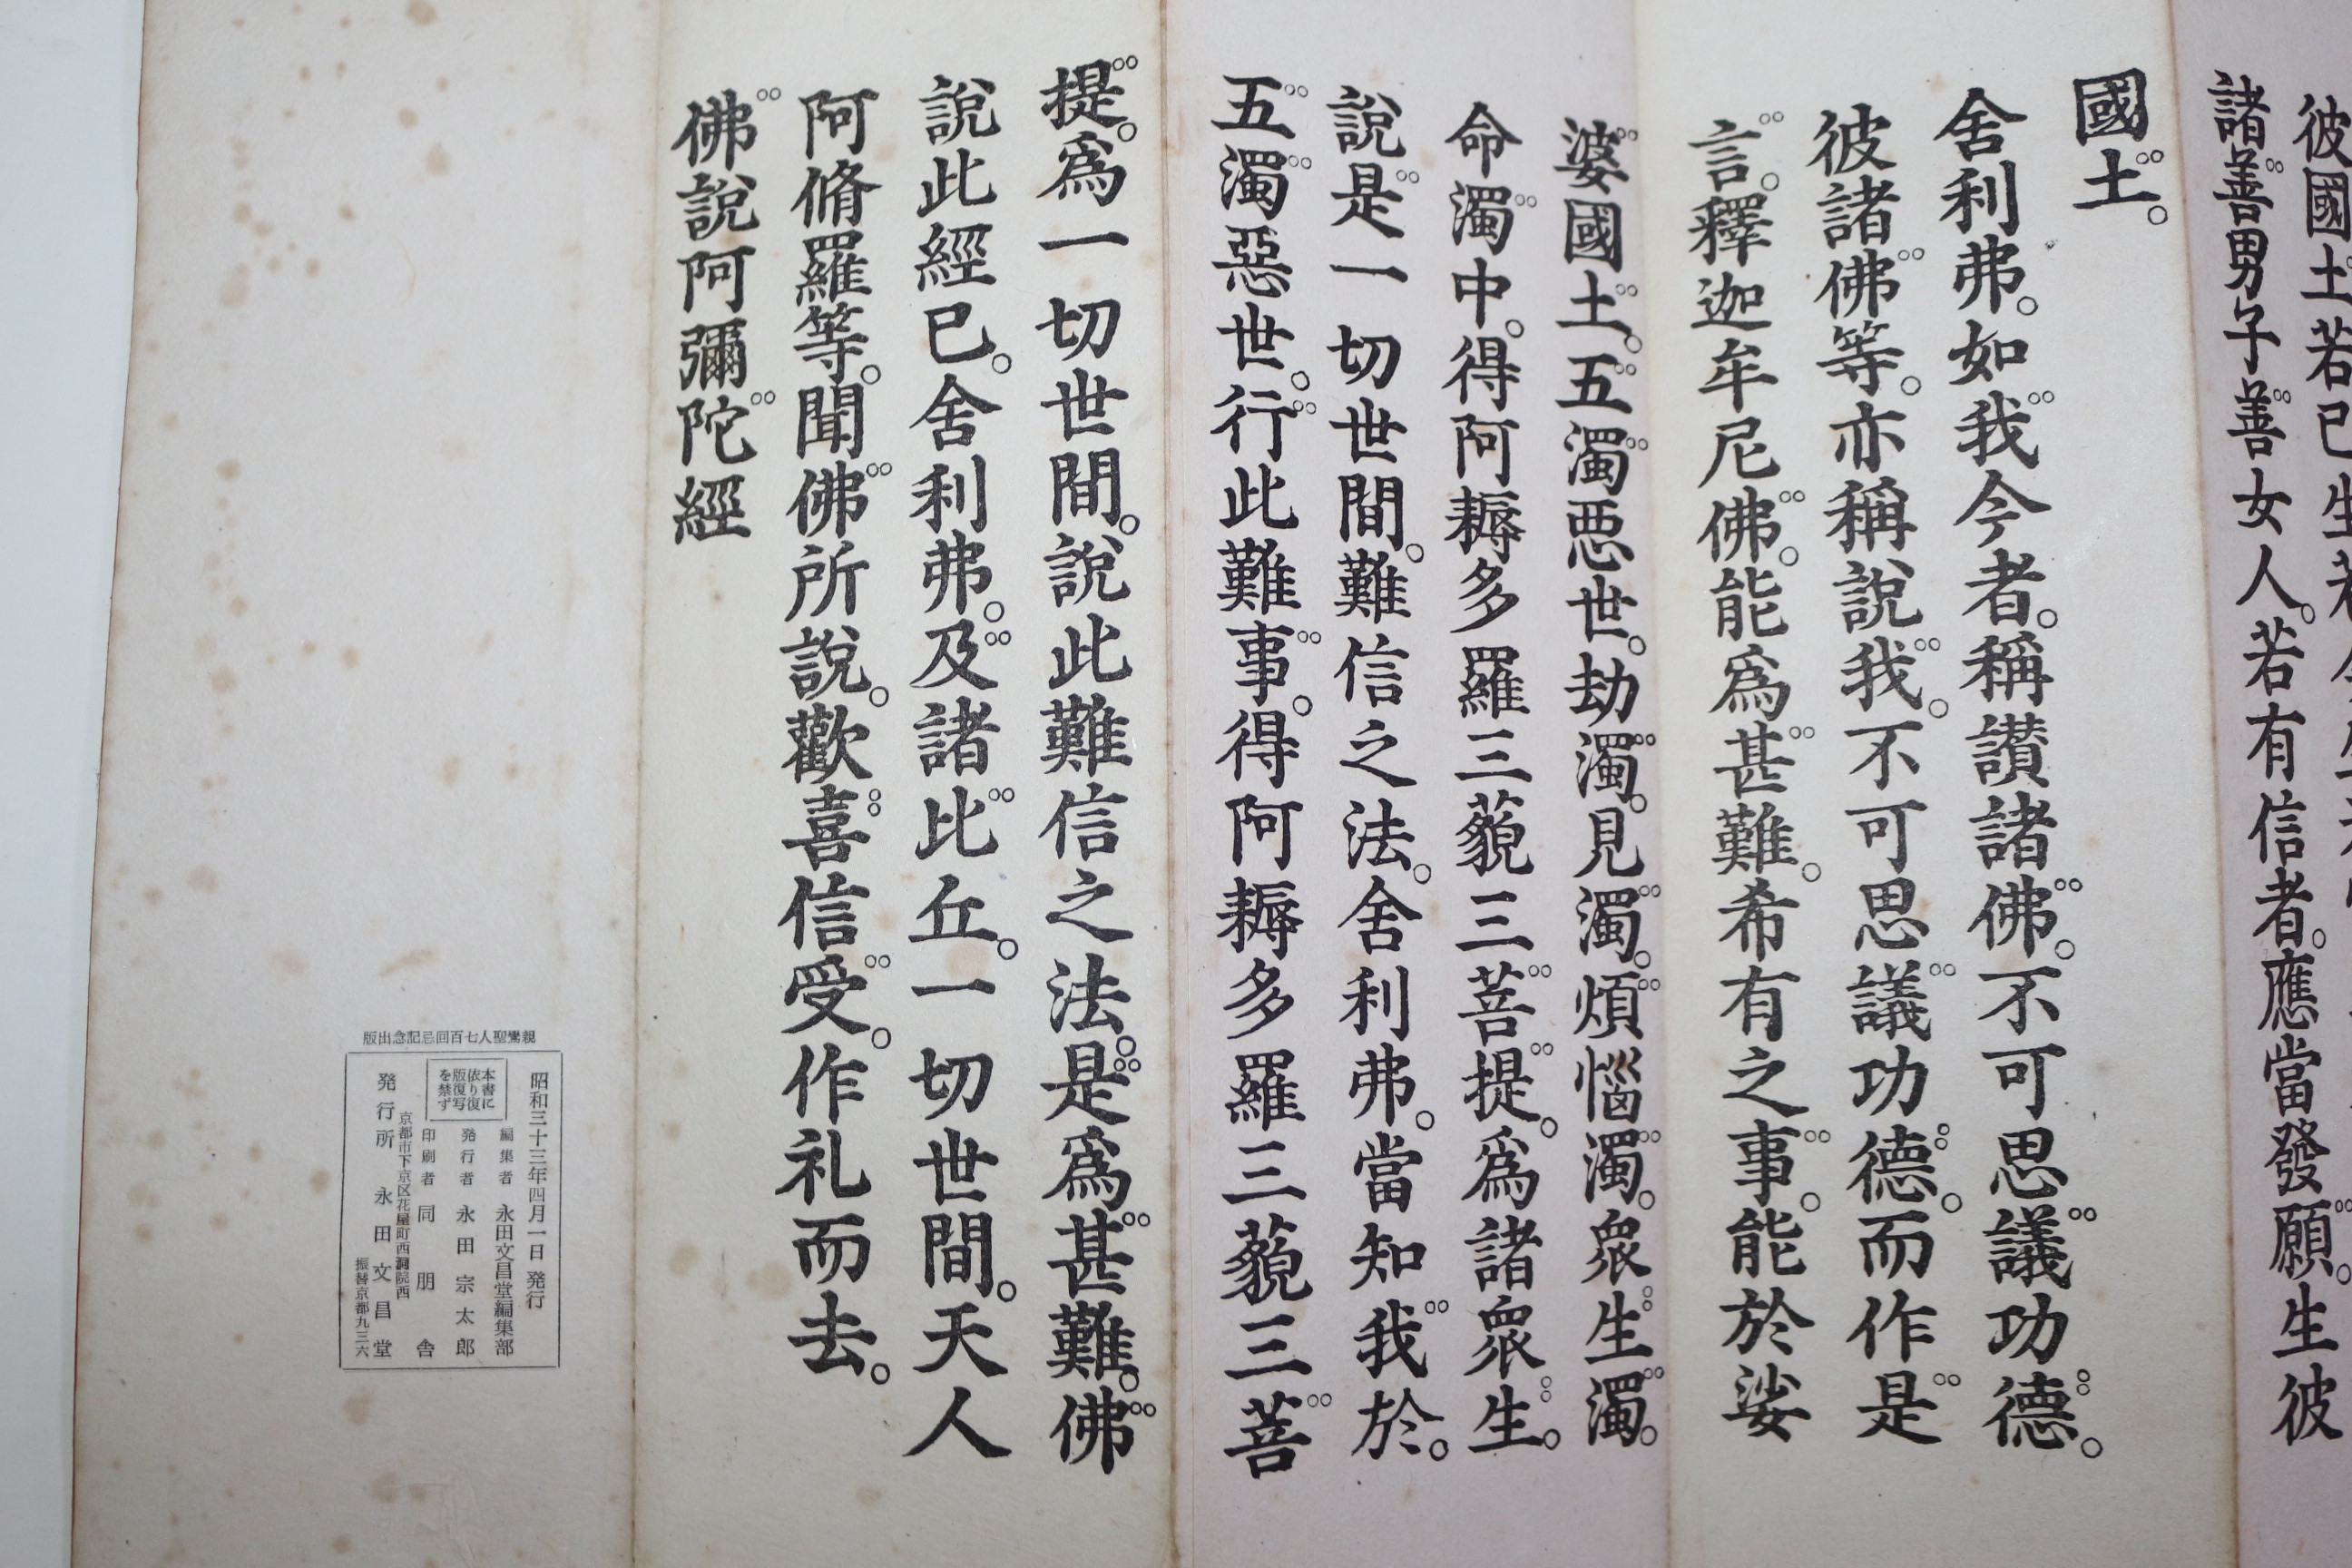 彼國土若已生若
諸善男子善女人。若有信者。應當發願。生彼
國土。
舍利弗。如我今者。稱讃諸佛。不可思議功德。
彼諸佛等。亦稱說我。不可思議功德。而作是
言。釋迦牟尼佛。能爲甚難。希有之事。能於娑
婆國土。五濁悪世。劫濁。見濁。煩惱濁。衆生濁。
命濁中。得阿耨多羅三藐三菩提。爲諸衆生。
說是一切世間。難信之法。舍利弗。當知我於。
五濁惡世。行此難事。得阿耨多羅三藐三菩
提。爲一切世間。說此難信之法。是爲甚難。佛
說此經已。舍利弗。及諸比丘。一切世間。天人
阿脩羅等。聞佛所說。歡喜信受。作礼而去。
佛說阿彌陀經
親鸞聖人七百回忌記念出版
昭和三十三年四月一日 発行
本書に
依り復
版復写
を禁ず
編集者 永田文昌堂編集部
発行者 永田宗太郎
印刷者 同朋舎
京都市下京区花屋町西洞院西
発行所 永田文昌堂
振替京都九三六